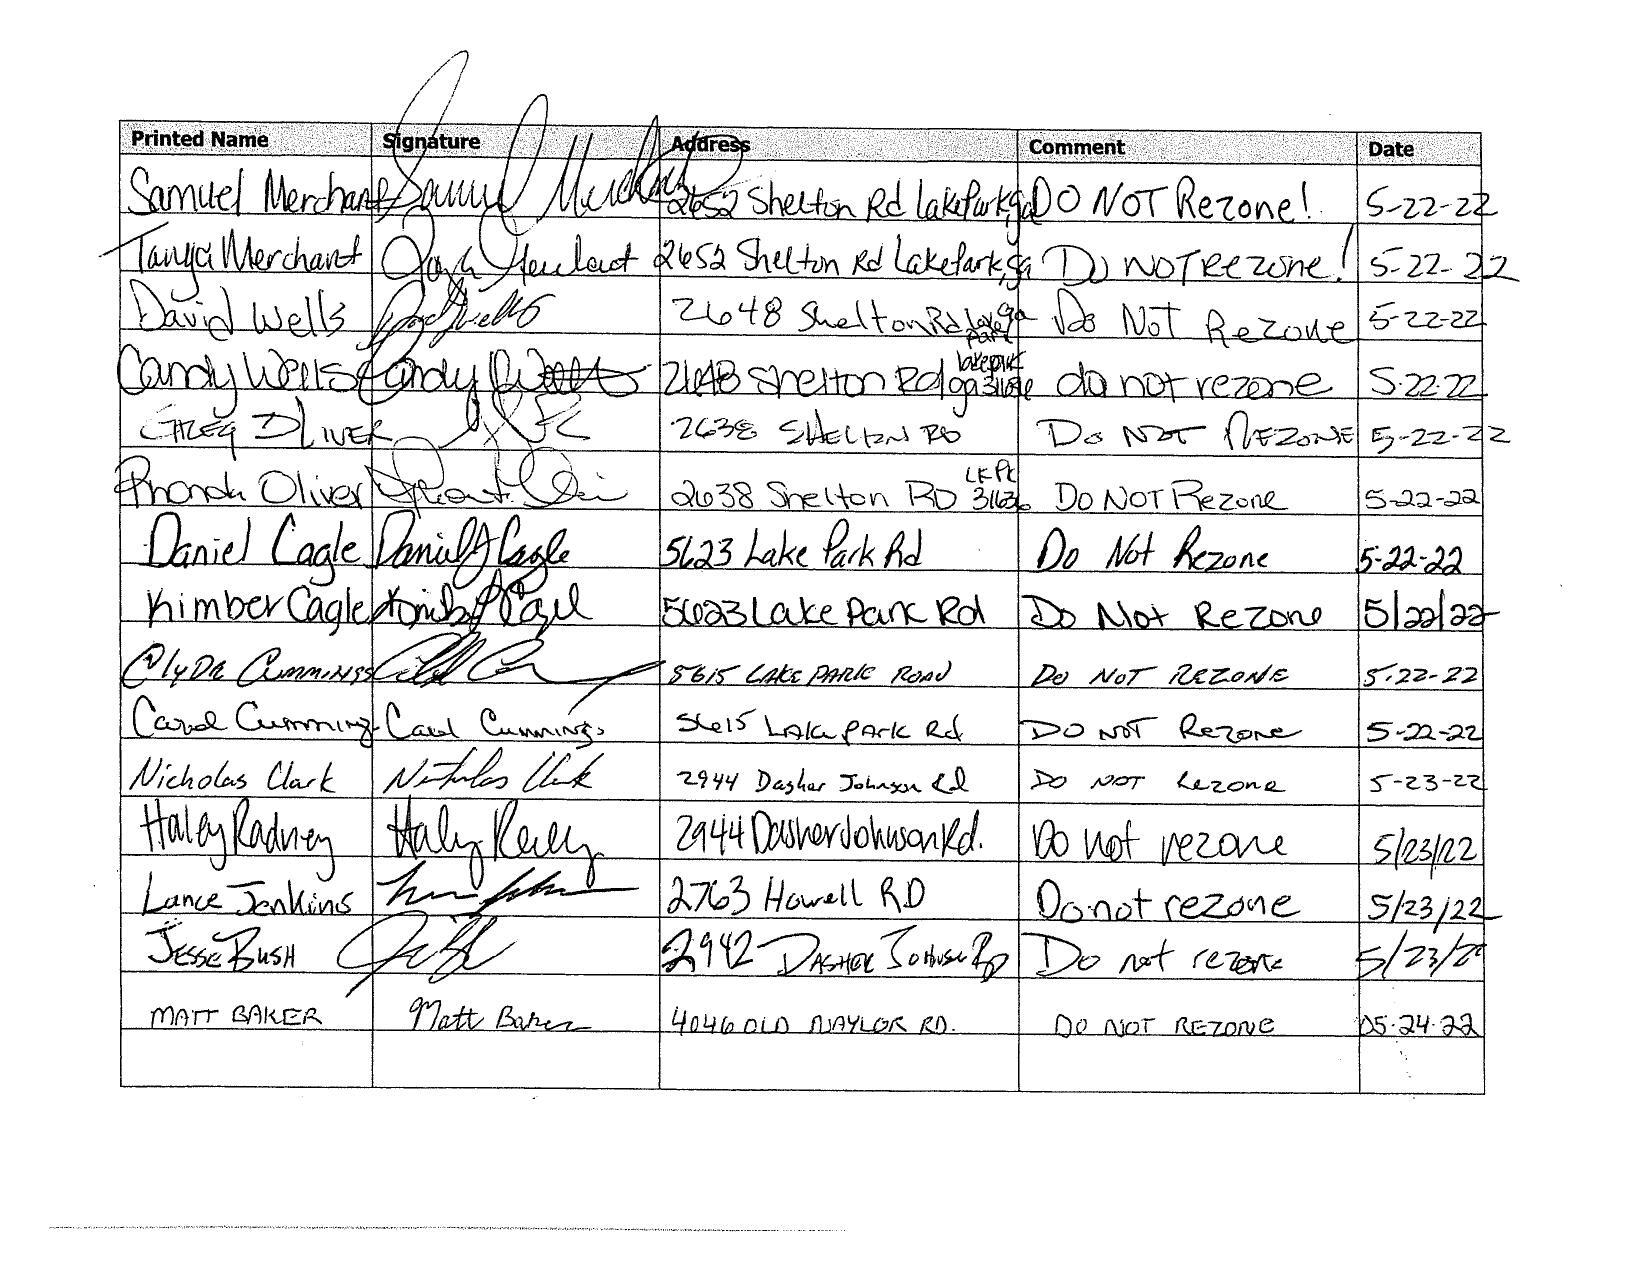 Printed Name Signature Address Comment Date
Samuel Merchant Samuel Merchant 2652 Shelton Rd Lake Park, ga DO NOT Rezone! 5-22-22
Tanya Merchant Tanya Merchant 2652 Shelton Rd Lake Park, ga Do NOT Rezone! 5-22-22
David Wells David Wells 2648 Shelton Rd Lake Park ga Do Not Rezone 5-22-22
Candy Wells Candy Wells 2648 Shelton Rd lake park ga 31636 do not rezone 5-22-22
GREG OLIVER 2638 SHELTON RD DO NOT REZONE 5-22-22
Rhonda Oliver 2638 Shelton RD LK PK 31636 DO NOT Rezone 5-22-22
Daniel Cagle Daniel Cagle 5623 Lake Park Rd Do Not Rezone 5-22-22
Kimber Cagle 5623 Lake Park Rd Do Not Rezone 5/22/22
Clyde Cummings 5615 LAKE PARK ROAD DO NOT REZONE 5-22-22
Carol Cummings Carol Cummings 5615 LAKe PARK Rd DO NOT Rezone 5-22-22
Nicholas Clark Nicholas Clark 2944 Dasher Johnson Rd DO NOT Rezone 5-23-22
Haley Radney Haley 2944 Dasher Johnson Rd. Do not rezone 5/23/22
Lance Jenkins 2763 Howell RD Do not rezone 5/23/22
JESSE BUSH 2942 DASHER JOHNSON RD Do not rezone 5/23/22
MATT BAKER Matt Baker 4046 OLD NAYLOR RD. DO NOT REZONE 05-24-22